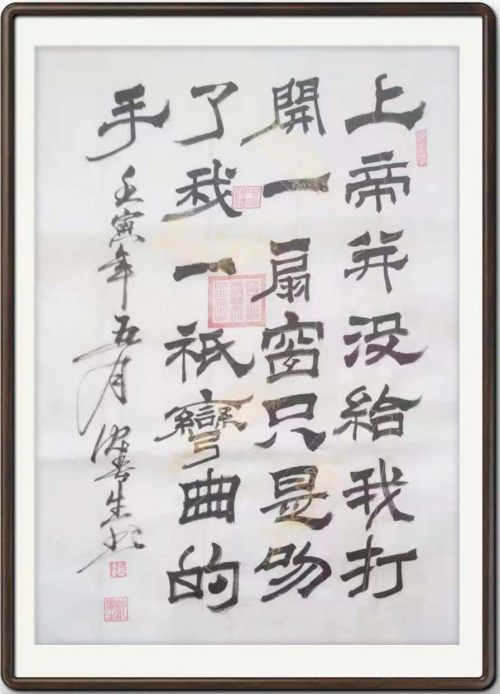 上帝并没给我打
開一扇窗只是吻
了我一祇彎曲的
手
壬寅年五月